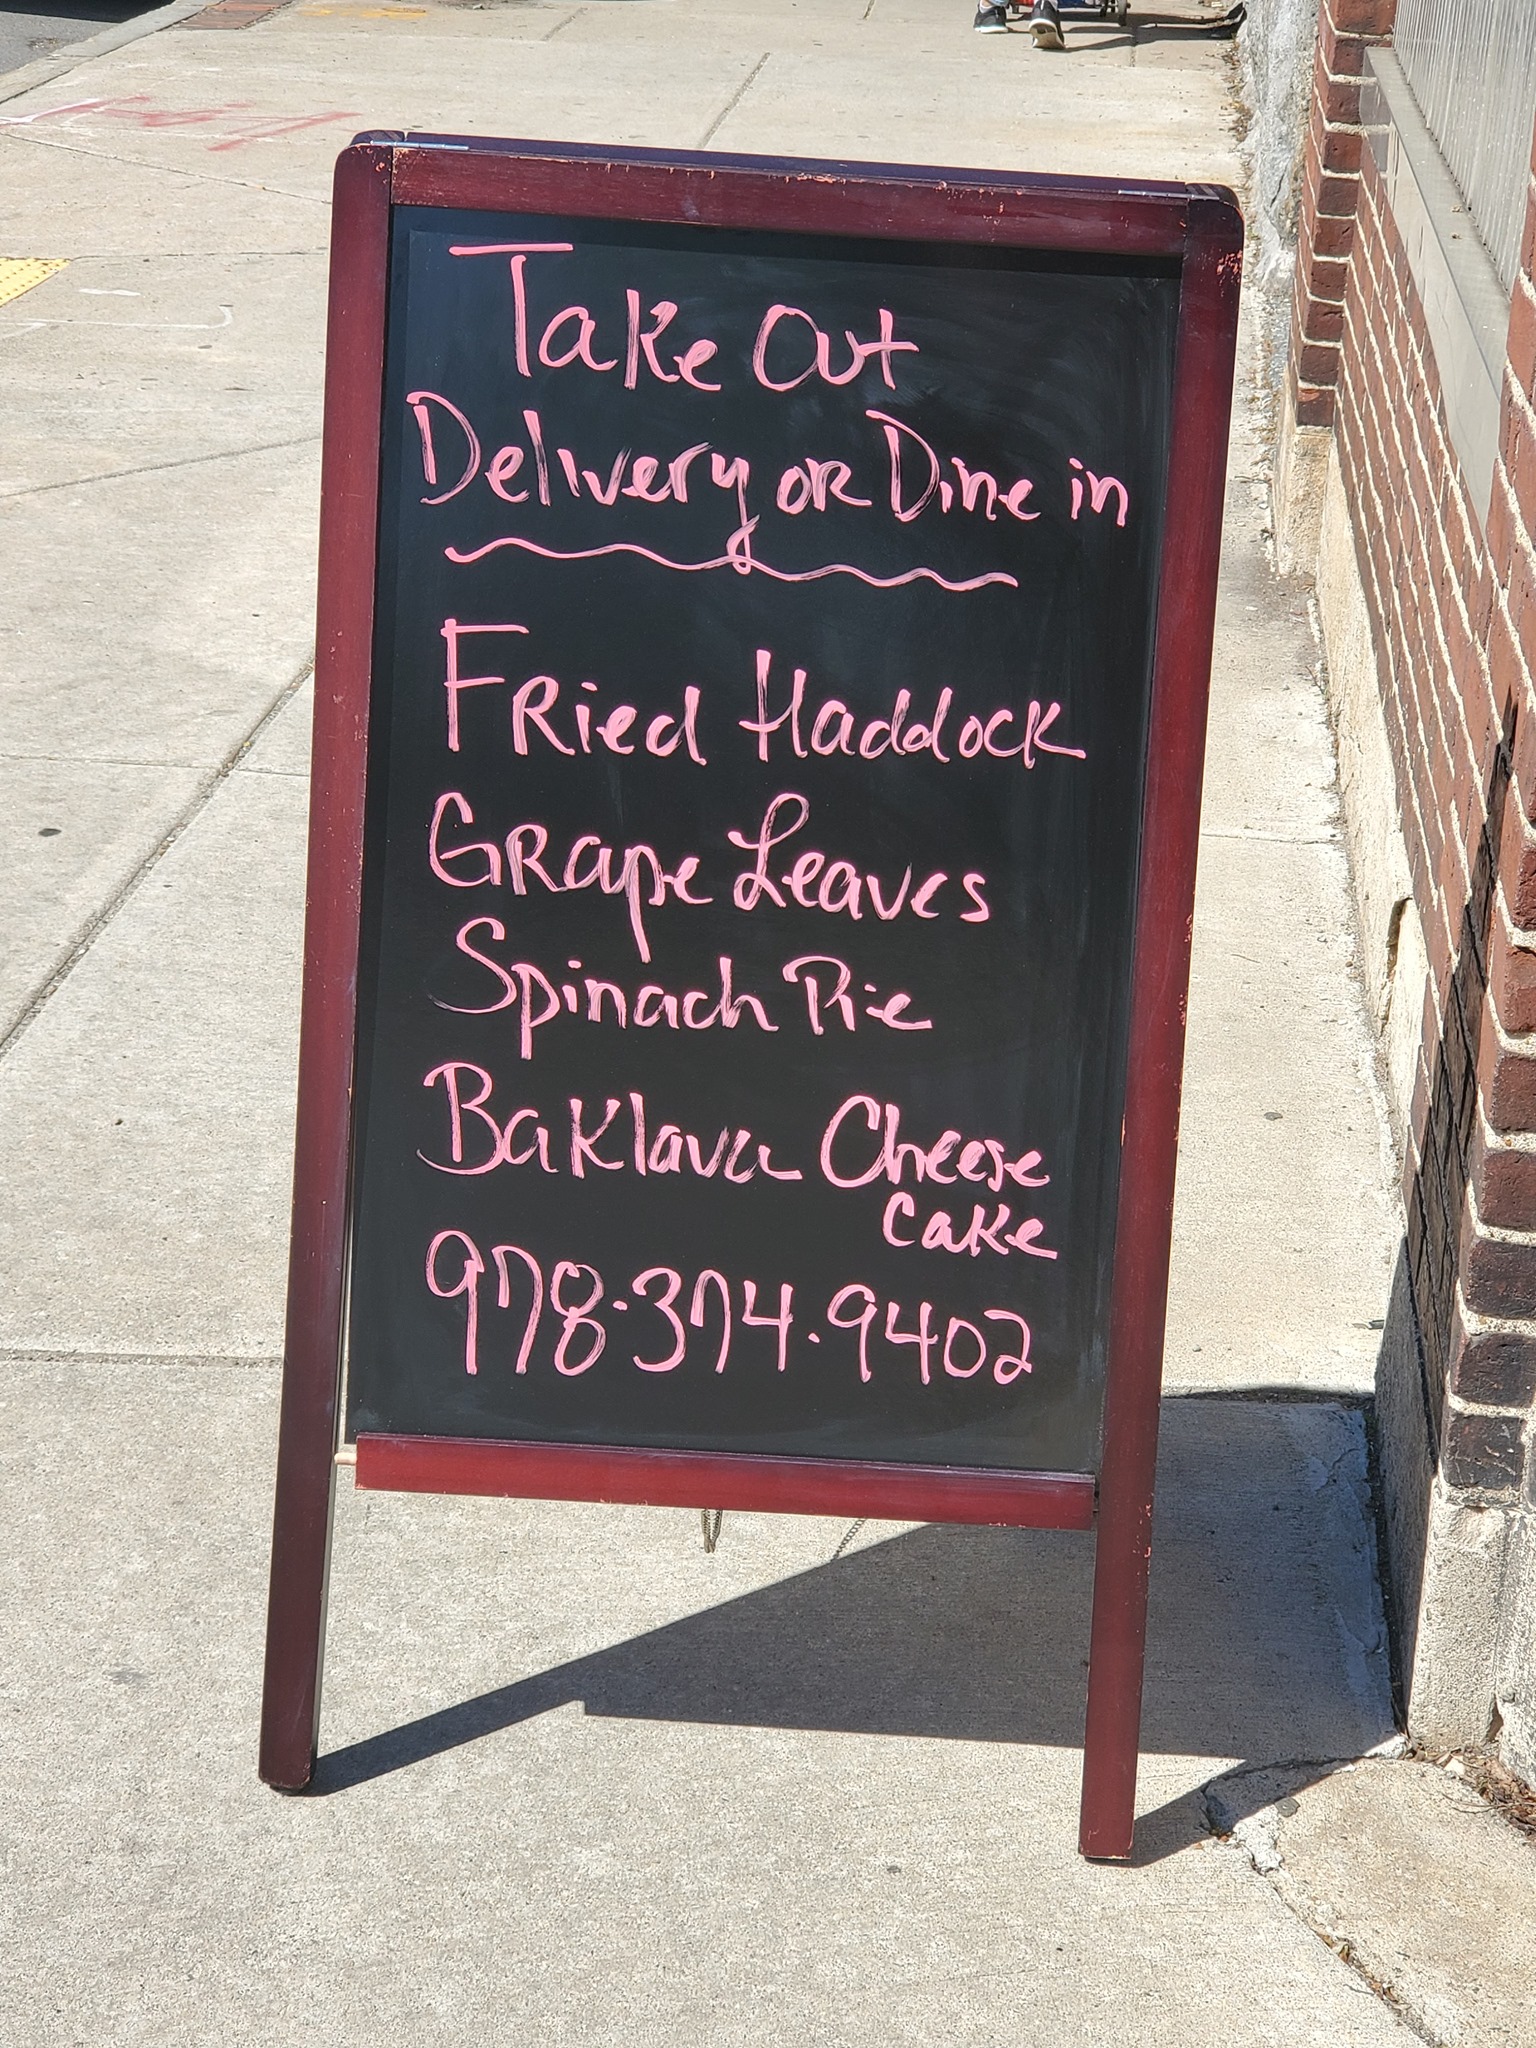 Take Out
Delivery or Dine in
Fried Haddock
Grape Leaves
Spinach Pie
Baklava Cheese
cake
978.374.9402